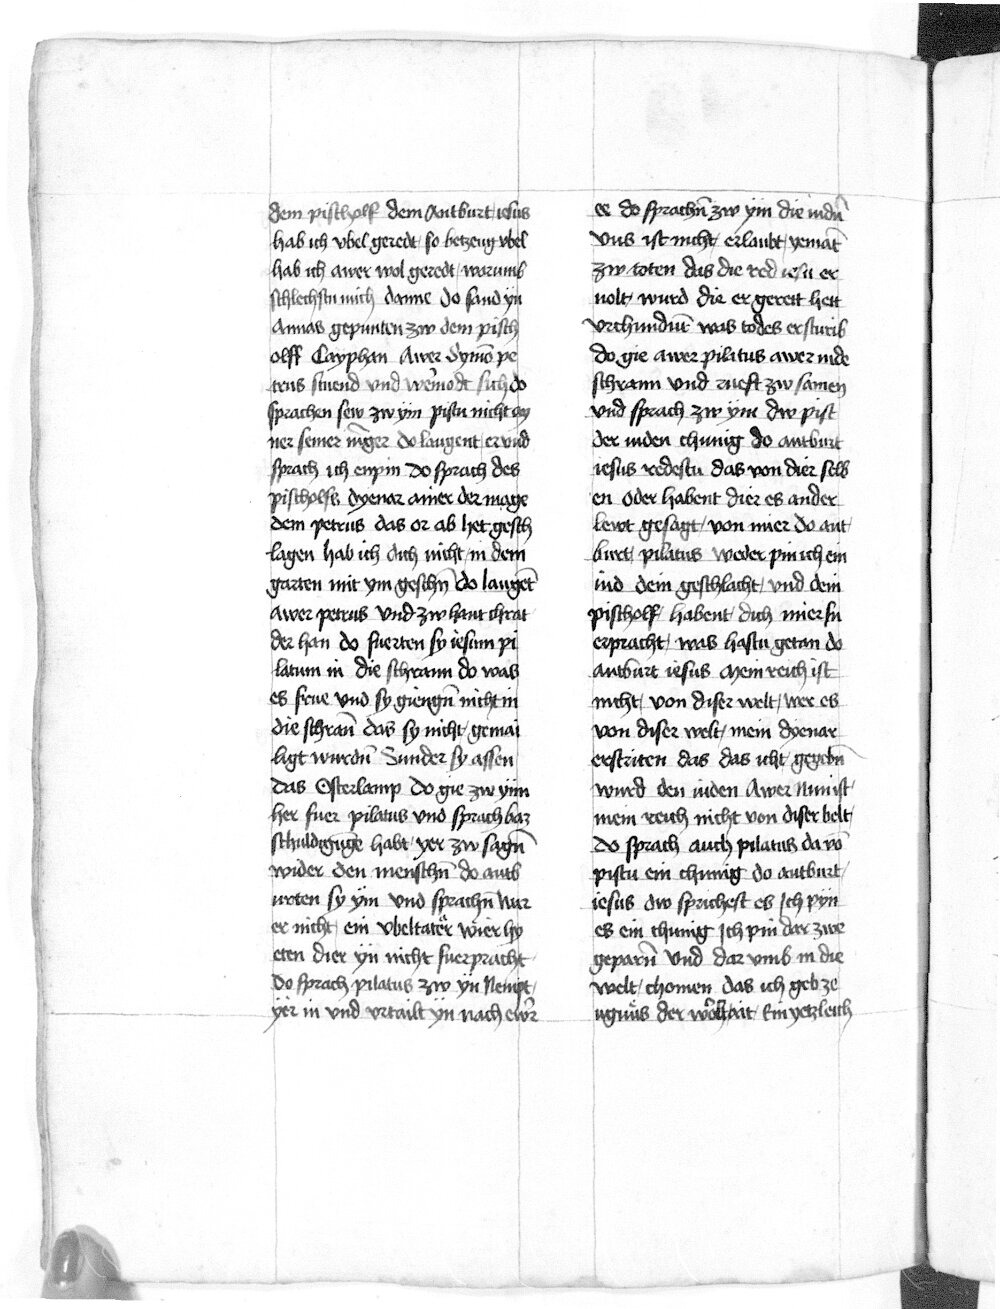 dem pischolf dem Antburt iesus
hab ich vbel geredt so betzeug vbel
hab ich awer wol geredt warumb
schlechstu mich danne do sand yn
Annas gepunten zw dem pisch
olff Cayphan Awer Symō pe
trus stuend vnd we᷑modt sich do
sprachen sew zw ym pistu nicht ay
ner seiner iūger do laugent er vnd
sprach ich enpin do sprach des
pischolfs dyenar ainer der mage
dem petrus das or ab het gesch
lagen hab ich dich nicht in dem
garten mit ym geschn̄ do laugēt
awer petrus vnd zw hant chrat
der han do fuerten sy iesum pi
latum in die schrann do was
es frue vnd sy giengn̄ nicht in
die schran̄ das sy nicht gemai
ligt wurdn̄ Sunder sy assen
das Osterlamp do gie zw ym
her fuer pilatus vnd sprach baz
schuldigūge habt yer zw sagn̄
wider den menschn̄ do antb
urten sy ym vnd sprachn̄ wur
er nicht ein vbeltatēr wier hy
eten dier yn nicht fuerpracht
do sprach pilatus zw yn Nempt
yer in vnd vrtailt yn nach ewr̄
ee do sprachn̄ zw ym die iudn̄
vns ist nicht erlaubt yemāt
zw toten das die red iesu er
uolt wurd die er gerett hett
vrchundūt was todes er sturib
do gie awer pilatus awer in de
schrann vnd rueft zw samen
vnd sprach zw ym dw pist
der iuden chunig do antburt
iesus redestu das von dier selb
en oder habent dier es ander
lewt gesagt von mier do ant
burt pilatus weder pin ich ein
iud dein geschlacht vnd dein
pischolf habent dich mier fu
erpracht was hastu getan do
antburt iesus Mein reich ist
nicht von diser welt wer es
von diser welt mein dyenar
erstriten das das icht gegebn̄
wurd den iuden Awer Nun ist
mein reich nicht von diser belt
do sprach auch pilatus da vō
pistu ein chunig do antburt
iesus dw sprichest es Ich pyn
es ein chunig Ich pin dar zwe
geparn̄ vnd dar vmb in die
welt chomen das ich geb ze
ugnüs der Ein yetzleich